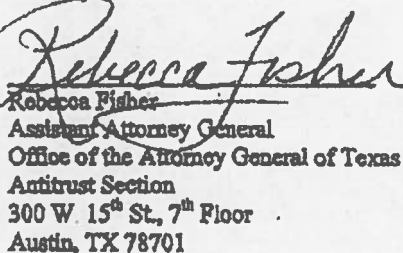 Rebecca Fisher
Rebecca Fisher
Assistant Attorney General
Office of the Attorney General of Texas
Antitrust Section
300 W. 15th St., 7th Floor
Austin, TX 78701